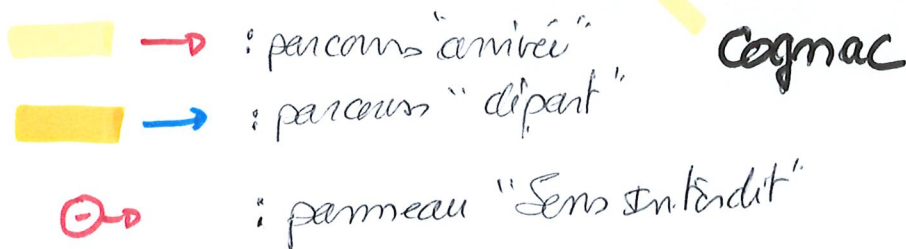 : parcours "arrivée"
Cognac
: parcours "départ"
: panneau "Sens Interdit"